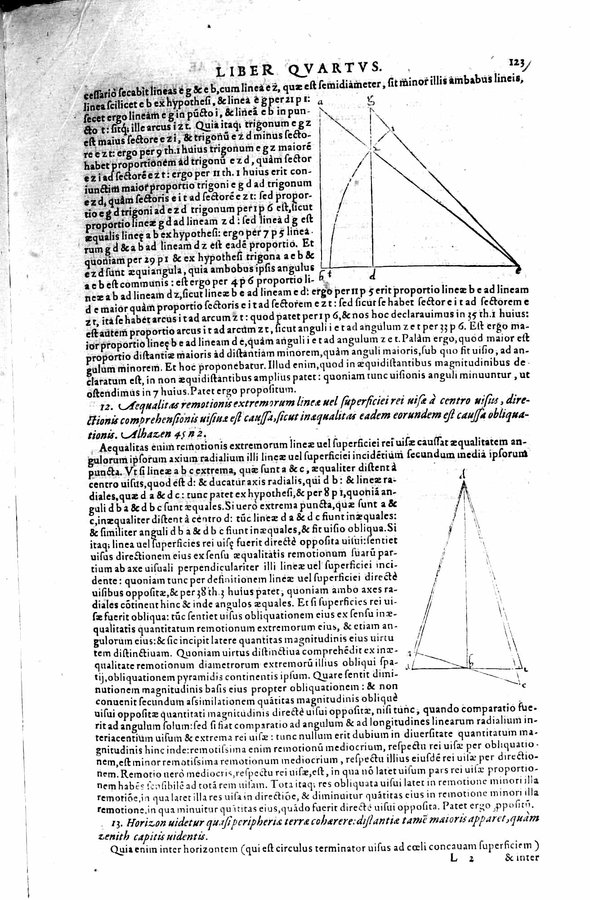 LIBER QVARTVS.
123
cessariò secabit lineas e g & e b, cum linea e z, quæ est semidiameter, sit minor illis ambabus lineis,
linea scilicet e b ex hypothesi, & linea e g per 21 p 1:
secet ergo lineam e g in pūcto i, & lineā e b in pun-
cto t: sitq́; ille arcus i z t. Quia itaq; trigonum e g z
est maius sectore e z i, & trigonū e z d minus secto-
re e z t: ergo per 9 th. 1 huius trigonum e g z maiorē
habet proportionem ad trigonū e z d, quàm sector
e z i ad sectorē e z t: ergo per 11 th. 1 huius erit con-
iunctim maior proportio trigoni e g d ad trigonum
e z d, quàm sectoris e i t ad sectorē e z t: sed propor-
tio e g d trigoni ad e z d trigonum per 1 p 6 est, sicut
proportio lineæ g d ad lineam z d: sed linea d g est
æqualis lineę a b ex hypothesi: ergo per 7 p 5 linea-
rum g d & a b ad lineam d z est eadē proportio. Et
quoniam per 29 p 1 & ex hypothesi trigona a e b &
e z d sunt æquiangula, quia ambobus ipsis angulus
a e b est communis: est ergo per 4 p 6 proportio li-
neæ a b ad lineam d z, sicut lineæ b e ad lineam e d: ergo per 11 p 5 erit proportio lineæ b e ad lineam
e d maior quàm proportio sectoris e i t ad sectorem e z t: sed sicut se habet sector e i t ad sectorem e
z t, ita se habet arcus i t ad arcum z t: quod patet per 1 p 6, & nos hoc declarauimus in 35 th. 1 huius:
est autem proportio arcus i t ad arcum z t, sicut anguli i e t ad angulum z e t per 33 p 6. Est ergo ma-
ior proportio lineę b e ad lineam d e, quàm anguli i e t ad angulum z e t. Palàm ergo, quòd maior est
proportio distantiæ maioris ad distantiam minorem, quàm anguli maioris, sub quo fit uisio, ad an-
gulum minorem. Et hoc proponebatur. Illud enim, quod in æquidistantibus magnitudinibus de-
claratum est, in non æquidistantibus amplius patet: quoniam tunc uisionis anguli minuuntur, ut
ostendimus in 7 huius. Patet ergo propositum.
12. Aequalitas remotionis extremorum lineæ uel superficiei rei uisæ à centro uisus, dire-
ctionis comprehensionis uisiuæ est caussa, sicut inæqualitas eadem eorundem est caussa obliqua-
tionis. Alhazen 45 n 2.
Aequalitas enim remotionis extremorum lineæ uel superficiei rei uisæ caussat æqualitatem an-
gulorum ipsorum axium radialium illi lineæ uel superficiei incidētium secundum media ipsorum
puncta. Vt si lineæ a b c extrema, quæ sunt a & c, æqualiter distent à
centro uisus, quod est d: & ducatur axis radialis, qui d b: & lineæ ra-
diales, quæ d a & d c: tunc patet ex hypothesi, & per 8 p 1, quoniā an-
guli d b a & d b c sunt æquales. Si uerò extrema puncta, quæ sunt a &
c, inæqualiter distent à centro d: tūc lineæ d a & d c fiunt inæquales:
& similiter anguli d b a & d b c fiunt inæquales, & fit uisio obliqua. Si
itaq; linea uel superficies rei uisę fuerit directè opposita uisui: sentiet
uisus directionem eius ex sensu æqualitatis remotionum suarū par-
tium ab axe uisuali perpendiculariter illi lineæ uel superficiei inci-
dente: quoniam tunc per definitionem lineæ uel superficiei directè
uisibus oppositæ, & per 38 th. 3 huius patet, quoniam ambo axes ra-
diales cōtinent hinc & inde angulos æquales. Et si superficies rei ui-
sæ fuerit obliqua: tūc sentiet uisus obliquationem eius ex sensu inæ-
qualitatis quantitatum remotionum extremorum eius, & etiam an-
gulorum eius: & sic incipit latere quantitas magnitudinis eius uirtu
tem distinctiuam. Quoniam uirtus distinctiua comprehēdit ex inæ-
qualitate remotionum diametrorum extremorū illius obliqui spa-
tij, obliquationem pyramidis continentis ipsum. Quare sentit dimi-
nutionem magnitudinis basis eius propter obliquationem: & non
conuenit secundum assimilationem quātitas magnitudinis obliquè
uisui oppositæ quantitati magnitudinis directè uisui oppositæ, nisi tunc, quando comparatio fue-
rit ad angulum solum: sed si fiat comparatio ad angulum & ad longitudines linearum radialium in-
teriacentium uisum & extrema rei uisæ: tunc nullum erit dubium in diuersitate quantitatum ma-
gnitudinis hinc inde: remotissima enim remotionū mediocrium, respectu rei uisæ per obliquatio-
nem, est minor remotissima remotionum mediocrium, respectu illius eiusdē rei uisæ per directio-
nem. Remotio uerò mediocris, respectu rei uisæ, est, in qua nō latet uisum pars rei uisæ proportio-
nem habēs sensibilē ad totā rem uisam. Tota itaq; res obliquata uisui latet in remotione minori illa
remotiōe, in qua latet illa res uisa in directiōe, & diminuitur quātitas eius in remotione minori illa
remotione, in qua minuitur quātitas eius, quādo fuerit directè uisui opposita. Patet ergo ꝓpositū.
13. Horizon uidetur quasi peripheria terræ cohærere: distantia tamē maioris apparet, quàm
zenith capitis uidentis.
Quia enim inter horizontem (qui est circulus terminator uisus ad cœli concauam superficiem)
L 2
& inter